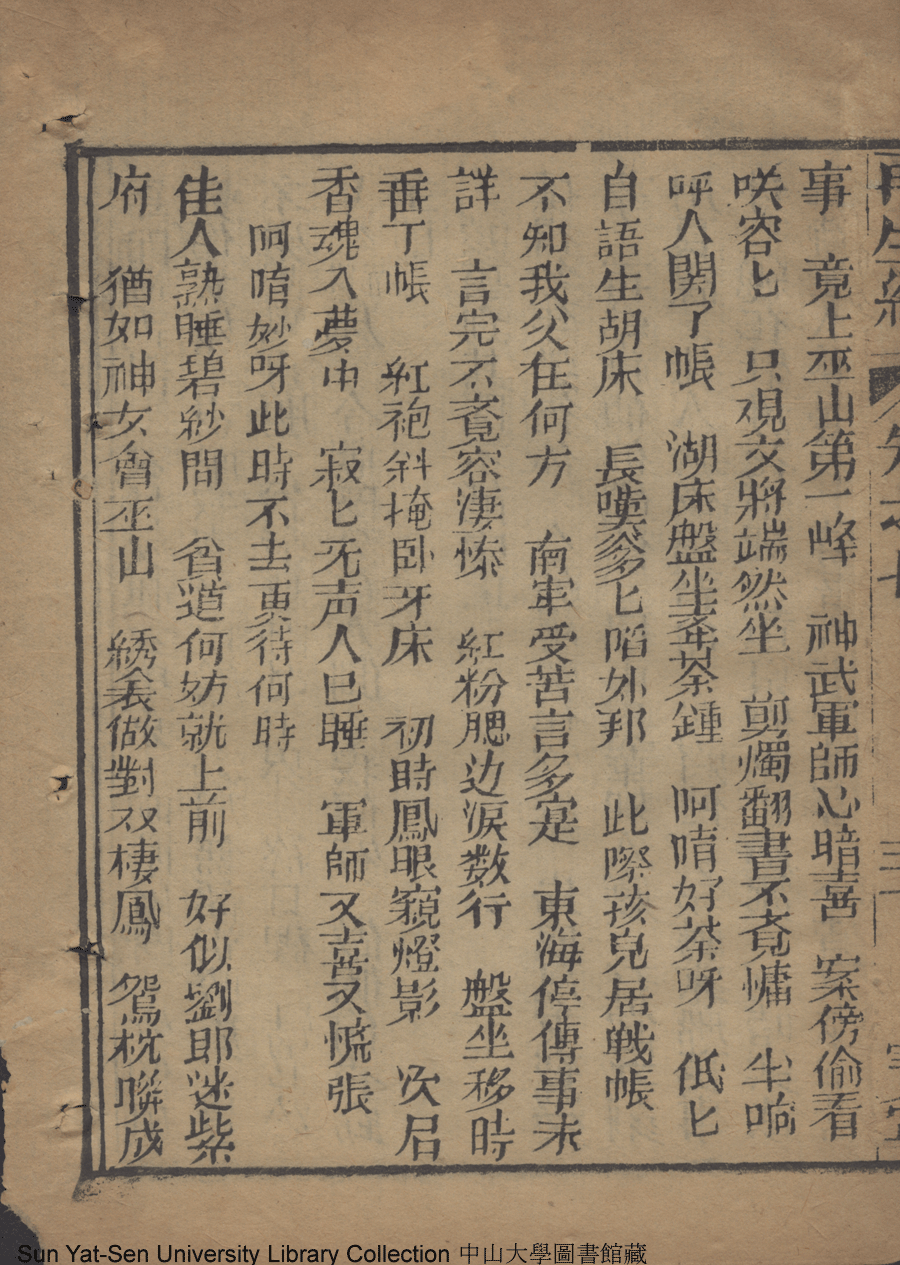 事 竟上巫山第一峰 神武軍師心暗喜 案傍偷看
咲容匕 只覌文將端然坐 剪燭翻書不覔慵 坐响
呼人関了帳 湖床盤坐奉茶鍾 阿唷好茶呀 低匕
自語生胡床 長嘆爹匕陷外邦 此際孩兒居戦帳
不知我父在何方 南牢受苦言多寔 東海停傳事未
詳 言完不覔容凄惨 紅粉腮边淚数行 盤坐移時
垂丁帳 紅袍斜掩卧牙床 初時鳳眼窺燈影 次后
香魂入夢中 寂匕旡声人巳睡 軍師又喜又慌張
阿唷妙呀此時不去更待何時
佳人熟睡碧紗間 貧道何妨就上前 好似劉郎迷紫
府 猶如神女會巫山 綉衾做對双棲鳳 鴛枕聯成
Sun Yat-Sen University Library Collection 中山大學圖書館藏